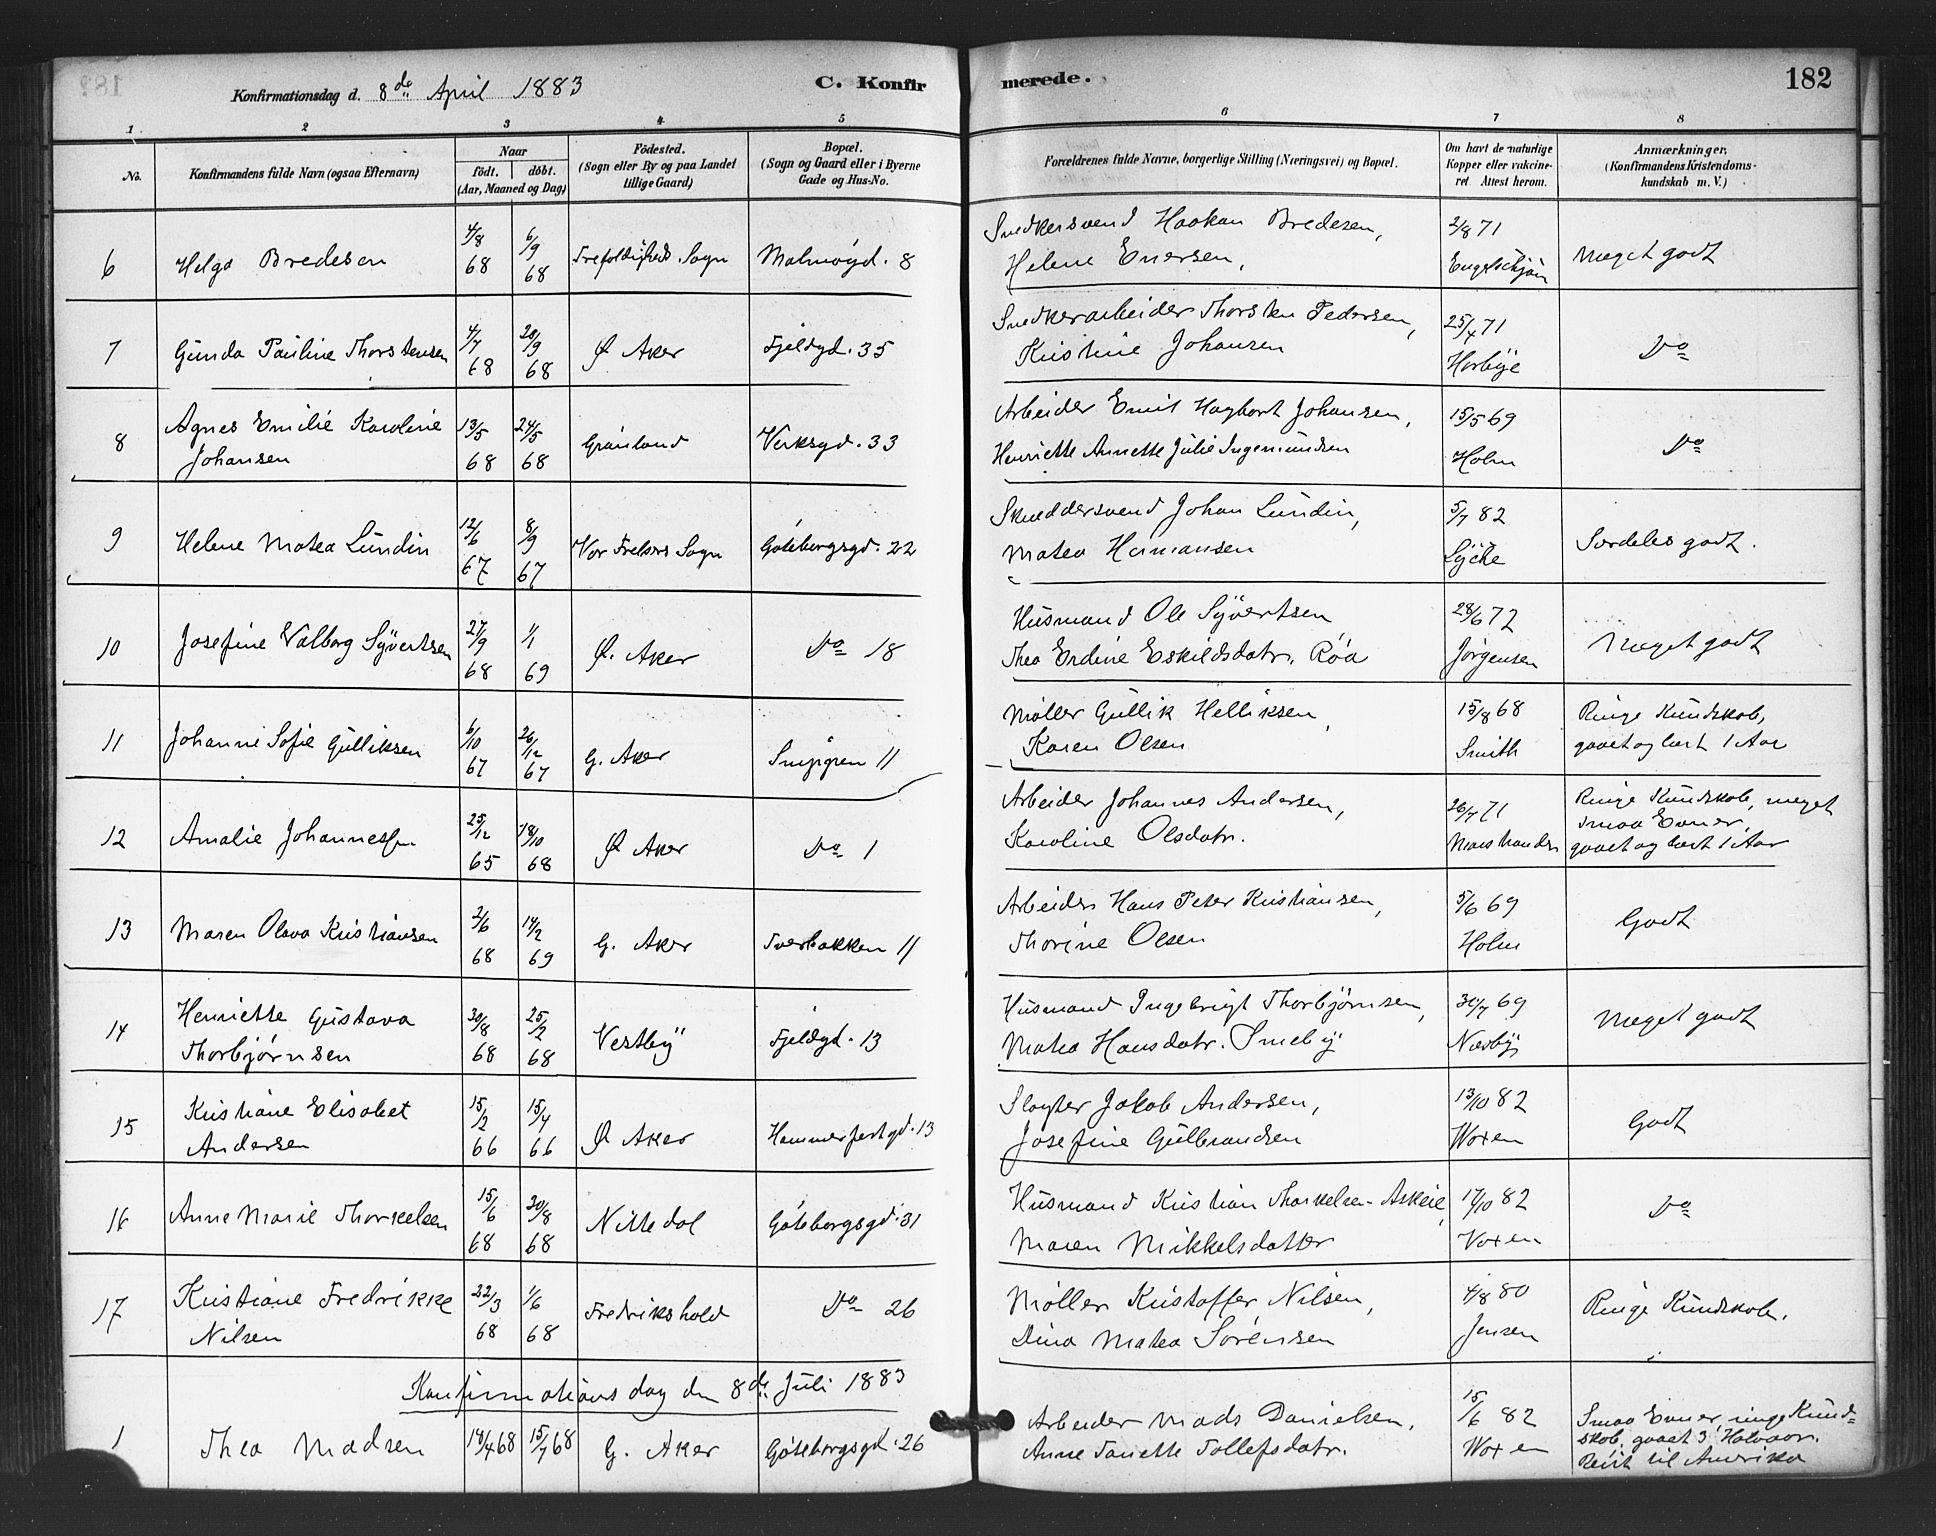 Konfirmationsdag d. 8de April 1883 C. Konfirmerede. 182
1 2 3 4 5 6 7 8
No. Konfirmandens fulde Navn (ogsaa Efternavn) Naar födt. döbt. (Aar, Maaned og Dag) Födested. (Sogn eller By og paa Landet tillige Gaard) Bopæl. (Sogn og Gaard eller i Byerne Gade og Hus-No. Forældrenes fulde Navne, borgerlige Stilling (Næringsvei) og Bopæl. Om havt de naturlige Kopper eller vakcineret. Attest herom. Anmærkninger. (Konfirmandens Kristendomskundskab m. V.)
6 Helga Bredesen 4/8 68 6/9 68 Trefoldigheds Sogn Malmøgd. 8 Snedkersvend Haakon Bredesen, 2/8 71 Meget godt
Helene Enersen, Engelschjøn
7 Gunda Pauline Thorstensen 4/7 68 20/9 68 Ø Aker Fjeldgd. 35 Snedkerarbeider Thorsten Pedersen, 25/4 71 Do
Kristine Johansen Horbye
8 Agnes Emilie Karoline 13/5 68 24/5 68 Grønland Verksgd. 33 Arbeider Emil Hagbart Johansen, 15/5 69 Do
Johansen Henriette Annette Julie Ingemundsen Holm
9 Helene Matea Lundin 12/6 67 8/9 67 Vor Frelsers Sogn Gøteborgsgd. 22 Skræddersvend Johan Lundin, 5/7 82 Særdeles godt.
Matea Hermansen Lyche
10 Josefine Valborg Syvertsen 27/9 68 1/1 69 Ø. Aker Do 18 Husmand Ole Syvertsen 28/6 72 Meget godt
Thea Erdine Eskildsdatr. Røa Jørgensen
11 Johanne Sofie Gulliksen 6/10 67 26/12 67 G. Aker 11 Møller Gullik Helliksen, 15/8 68 Ringe Kundskab,
Karen Olsen Smith gaaet og læst 1 Aar
12 Amalie Johannessen 25/12 65 18/10 68 Ø Aker Do 1 Arbeider Johannes Andersen, 26/7 71 Ringe Kundskab, meget
Karoline Olsdatr. smaa Evner,
gaaet og læst 1 Aar
13 Maren Olava Kristiansen 2/6 68 14/2 69 G. Aker Tverbakken 11 Arbeider Hans Peter Kristiansen, 5/6 69 Godt
Thorine Olsen Holm
14 Henriette Gustava 30/8 68 25/2 68 Vestby Fjeldgd. 13 Husmand Ingebrigt Thorbjørnsen, 30/7 69 Meget godt
Thorbjørnsen Matea Hansdatr. Smeby Næsby
15 Kristiane Elisabet 15/2 66 15/4 66 Ø Aker Hammerfestgd. 13 Slagter Jakob Andersen, 13/10 82 Godt
Andersen Josefine Gulbrandsen Woxen
16 Anne Marie Thorkelsen 15/6 68 30/8 68 Nittedal Gøteborgsgd. 31 Husmand Kristian Thorkelsen Askeie, 17/10 82 Do
Maren Mikkelsdatter Voxen
17 Kristiane Fredrikke 22/3 68 1/6 68 Fredrikshald Do 26 Møller Kristoffer Nilsen, 4/8 80 Ringe Kundskab.
Nilsen Dina Matea Sørensen Jensen
Konfirmationsdag den 8de Juli 1883
1 Thea Madsen 14/4 68 15/7 68 G. Aker Gøteborgsgd. 26 Arbeider Mads Danielsen, 15/6 82 Smaa Evner, ringe Kund-
Anne Tollefsdatr. Woxen skab, gaaet 3 Halvaar.
Reist til Amerika